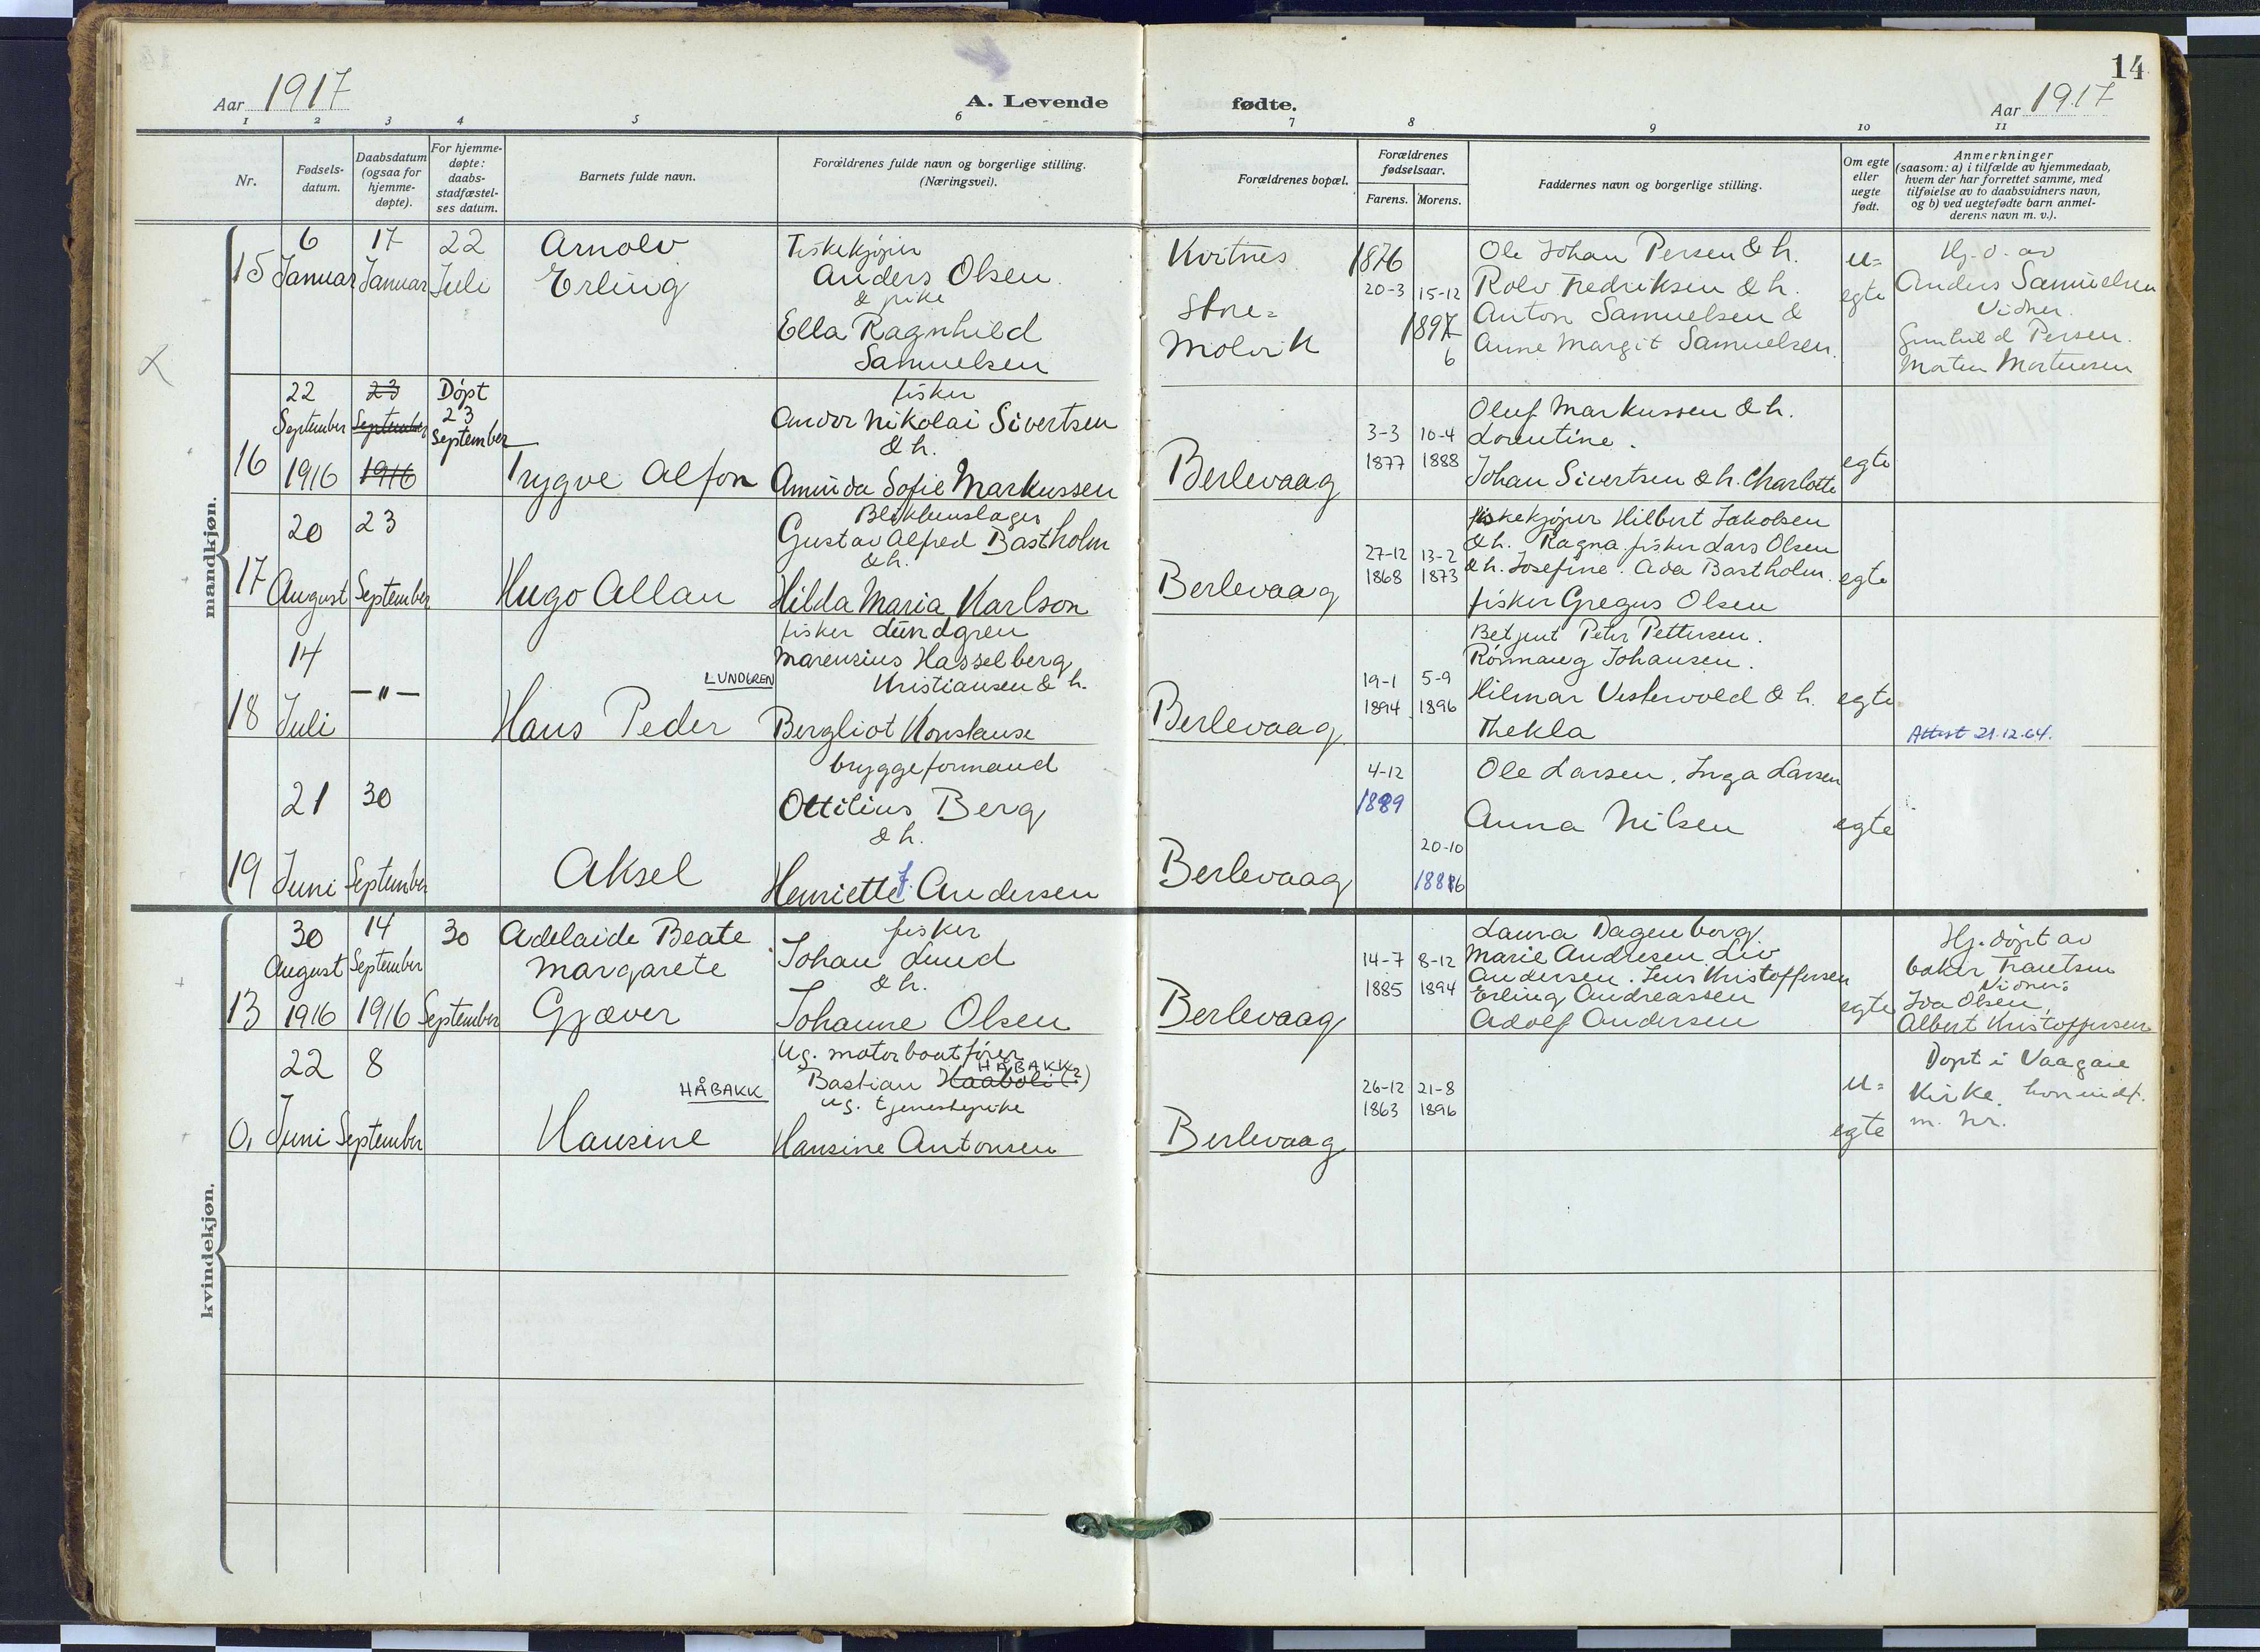 14
Aar 1917
A. Levende
fødte.
Aar 1917
1 2 3 4 5 6 7 8 9 10 11
Nr.
Fødsels-
datum.
Daabsdatum
(ogsaa for
hjemme-
døpte).
For hjemme-
døpte:
daabs-
stadfæstel-
ses datum.
Barnets fulde navn.
Forældrenes fulde navn og borgerlige stilling.
(Næringsvei).
Forældrenes bopæl.
Forældrenes
fødselsaar.
Farens. Morens.
Faddernes navn og borgerlige stilling.
Om egte
eller
uegte
født.
Anmerkninger
(saasom: a) i tilfælde av hjemmedaab,
hvem der har forrettet samme, med
tilføielse av to daabsvidners navn,
og b) ved uegtefødte barn anmel-
derens navn m. v.).
mandkjøn.
15
6
Januar
17
Januar
22
Juli
Arnolv
Erling
Fiskekjøper
Anders Olsen
& pike
Ella Ragnhild
Samuelsen
Kvitnes
Store=
Molvik
1876
20-3
15-12
1897
6
Ole Johan Persen & h.
Rolv Fredriksen & h.
Anton Samuelsen &
Anne Margit Samuelsen.
u=
egte
Hj. d. av
Anders Samuelsen
Vidner.
Gunhild Persen.
Morten Mortensen
16
22
September
1916
23
September
1916
Døpt
23
September
Trygve Alfon
fisker
Andor Nikolai Sivertsen
& h.
Aminda Sofie Markussen
Berlevaag
3-3
1877
10-4
1888
Oluf Markussen & h.
Lorentine.
Johan Sivertsen & h. Charlotte
egte
17
20
August
23
September
Hugo Allan
Blikkenslager
Gustav Alfred Bastholm
& h.
Hilda Maria Karlson
Berlevaag
27-12
1868
13-2
1873
fiskekjøper Hilbert Jakobsen
& h. Ragna. fisker Lars Olsen
& h. Josefine. Ada Bastholm.
fisker Gregus Olsen
egte
18
14
Juli
— " —
LUNDGREN
Hans Peder
fisker Lundgren
Marensius Hasselberg
Kristiansen & h.
Bergliot Konstanse
Berlevaag
19-1
1894
5-9
1896
Betjent Peter Pettersen.
Rønnaug Johansen.
Hilmar Vestervold & h.
Thekla
egte
Attest 21.12.64.
19
21
Juni
30
September
Aksel
bryggeformand
Ottilius Berg
& h.
Henriette f. Andersen
Berlevaag
4-12
1889
20-10
1886
Ole Larsen, Inga Larsen
Anna Nilsen
egte
kvindekjøn.
13
30
August
1916
14
September
1916
30
September
Adelaide Beate
Margarete
Gjæver
fisker
Johan Lund
& h.
Johanne Olsen
Berlevaag
14-7
1885
8-12
1894
Laura Dagenborg
Marie Andresen Liv
Andersen. Jens Kristoffersen
Erling Andreassen
Adolf Andersen
egte
Hj. døpt av
baker Frantsen
Vidner:
Ida Olsen,
Albert Kristoffersen
0,
22
Juni
8
September
HÅBAKK
Hansine
Ug. motorbaatfører
HÅBAKK
Bastian Haaboli (?)
ug. tjenestepike
Hansine Antonsen
Berlevaag
26-12
1863
21-8
1896
u=
egte
Døpt i Vaagane
Kirke,
m. Nr.